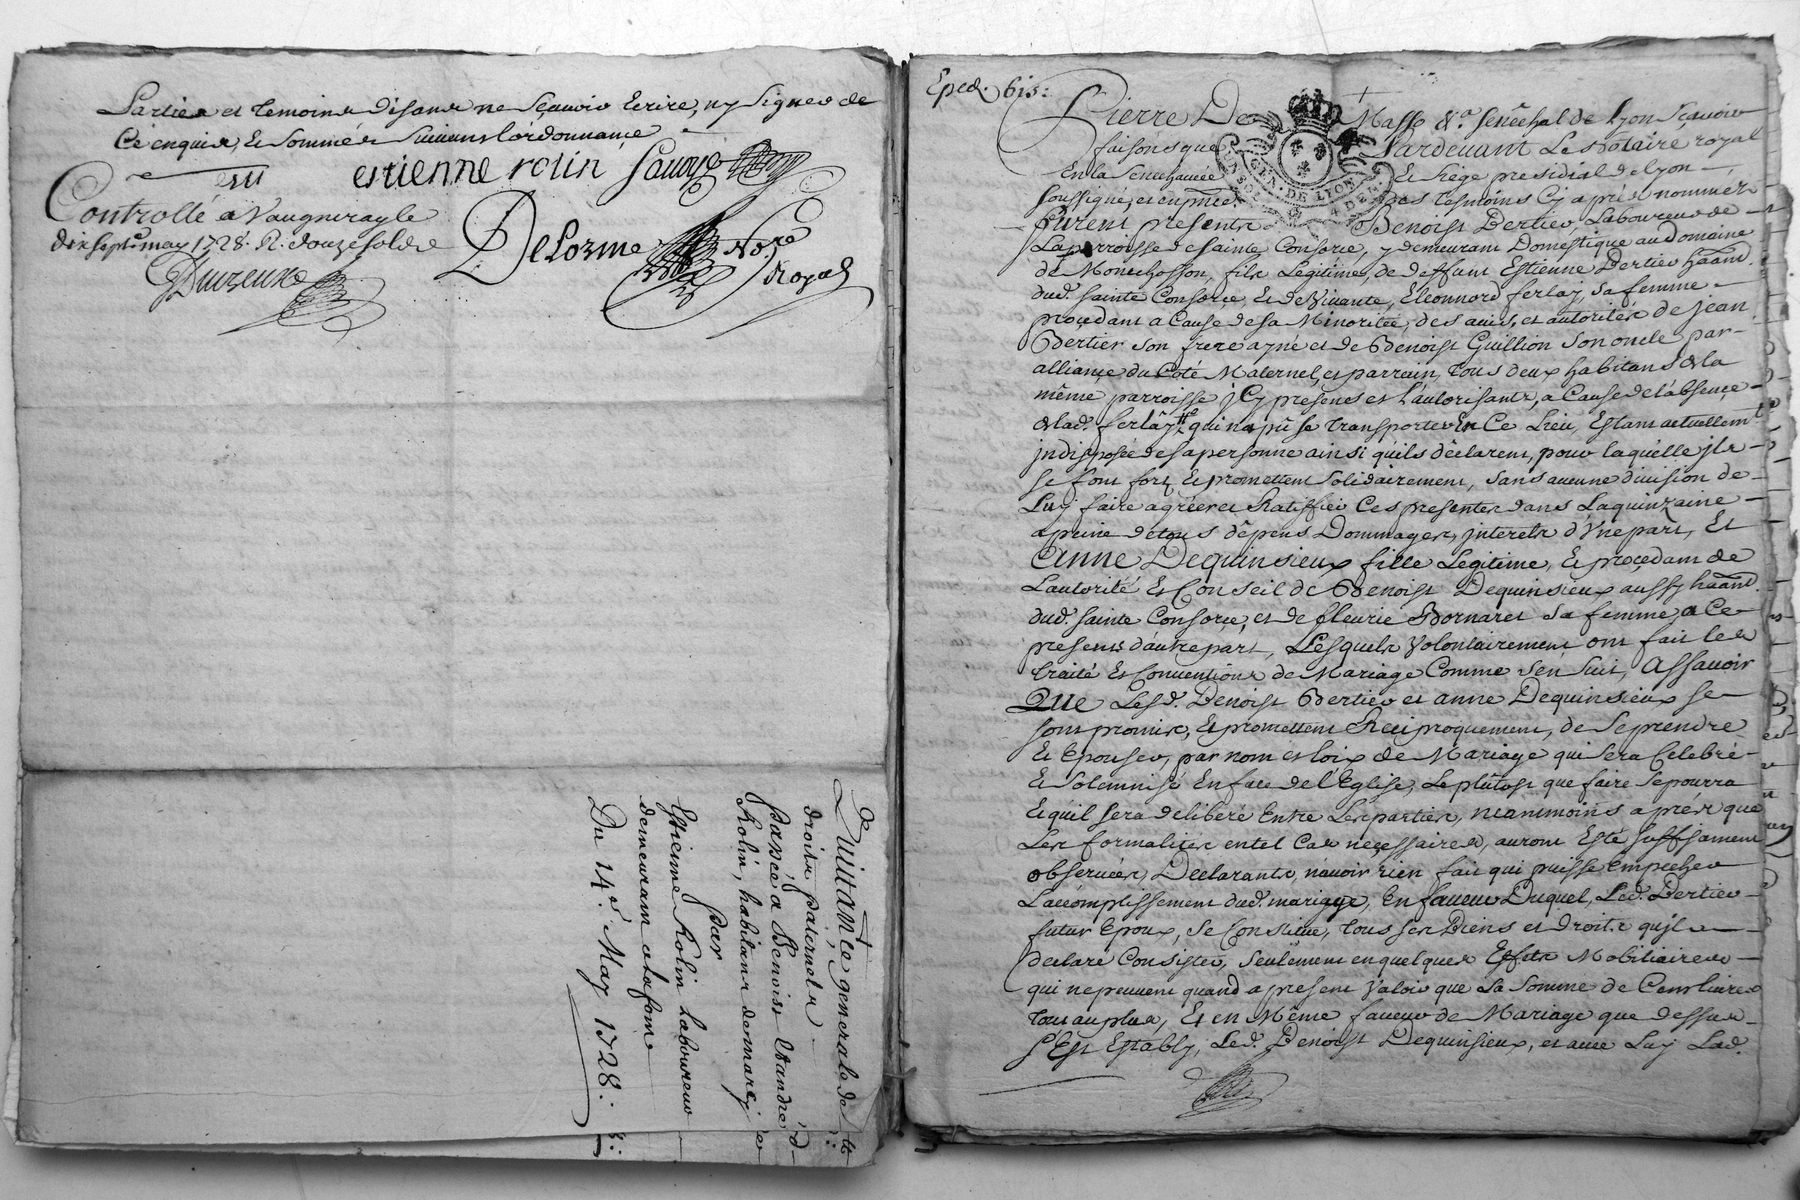 Parties et temoins disans ne sçavoir Ecrire, ny signer de
Ce enquis, Et sommés suivant lórdonnançe
estienne rolin Sauuge
Controllé a Vaugneray le
dix sept.e may 1728. R. douze sols
DeLorme No.re
Royal
Quittançe generalle de
droits paternels
passée a Benoist Et andré
Rolin, habitans de marcy
Par
Estienne Rolin Laboureur
demeurant a la font
Du 14.e May 1728:
Exped. bis:
Pierre De Masso &.a Senêchal de Lyon Sçavoir
faisons que Pardevant Le Notaire royal
En la Senechaucée Et siege presidial de Lyon
soussigné, et en presence des tesmoins Cy aprés nommés
furent presents Benoist Bertier, Laboureur de
La parroisse de sainte Consorce, y demeurant Domestique au domaine
de Montchosson, fils Legitime, de deffunt Estienne Bertier háant
dud. sainte Consorce, Et de Vivante, Eleonnord ferlay, sa femme
proçedant a Cause de sa Minoritée, des auis, et autorités de jean
Bertier son frere ayné et de Benoist Guillion son oncle par
alliançe du Coté Maternel, et parrain, tous deux habitans de la
même parroisse jCy presens et l'autorisants, a Cause de l'absençe
de lad. ferlay qui n'a pû se transporter En Ce Lieu, Estant actuellem.t
jndisposée de sa personne ainsi qu'ils dêclarent, pour laquelle jls
se font fort, Et promettent solidairement, sans aucune division de
Luy faire agréer et Ratiffier Ces presentes dans La quinzaine
a peine de tous dêpens Dommages, jnterets d'Vne part, Et
Anne Dequinsieux fille Legitime, Et procedant de
L'autorité Et Conseil de Benoist Dequinsieux aussy háant
dud. sainte Consorce, et de fleurie Bornaret sa femme, a Ce
presents d'autre part, Lesquels Volontairement ont fait les
traité Et Conventions de Mariage Comme s'en suit, Assavoir
Que Lesd. Benoist Bertier et anne Dequinsieux se
sont promis, Et promettent Reciproquement, de se prendre
Et Epouser, par nom et loix de Mariage qui sera Celebré
Et solemnisé En face de l'Eglise, Le plûtost que faire se pourra
Et qu'il sera deliberé Entre Les parties, neammoins aprés que
Les formalités en tel Cas neçessaires, auront Esté suffisament
observées, Declarants, n'avoir rien fait qui puisse Empecher
L'accomplissement dud. mariage, En faveur Duquel, Led. Bertier
futur Epoux, se Constitue, tous ses Biens et droits qu'jl
declare Consister, seulement en quelques Effets Mobiliaires
qui ne peuvent quand a present Valoir que La somme de Cent livres
tout au plus, Et en Même faveur de Mariage que dessus
s'Est Estably, Led. Benoist Dequinsieux, et avec Luy Lad.